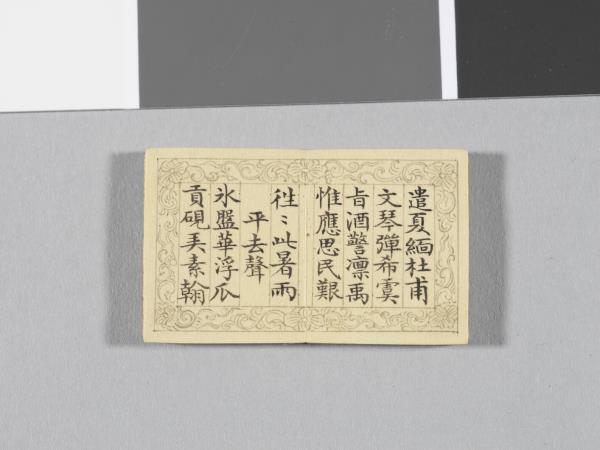 遣夏緬杜甫
文琴彈希虞
旨酒警凛禹
惟應思民艱
徃〻此暑雨
平去聲
氷盤華浮瓜
貢硯羙素翰